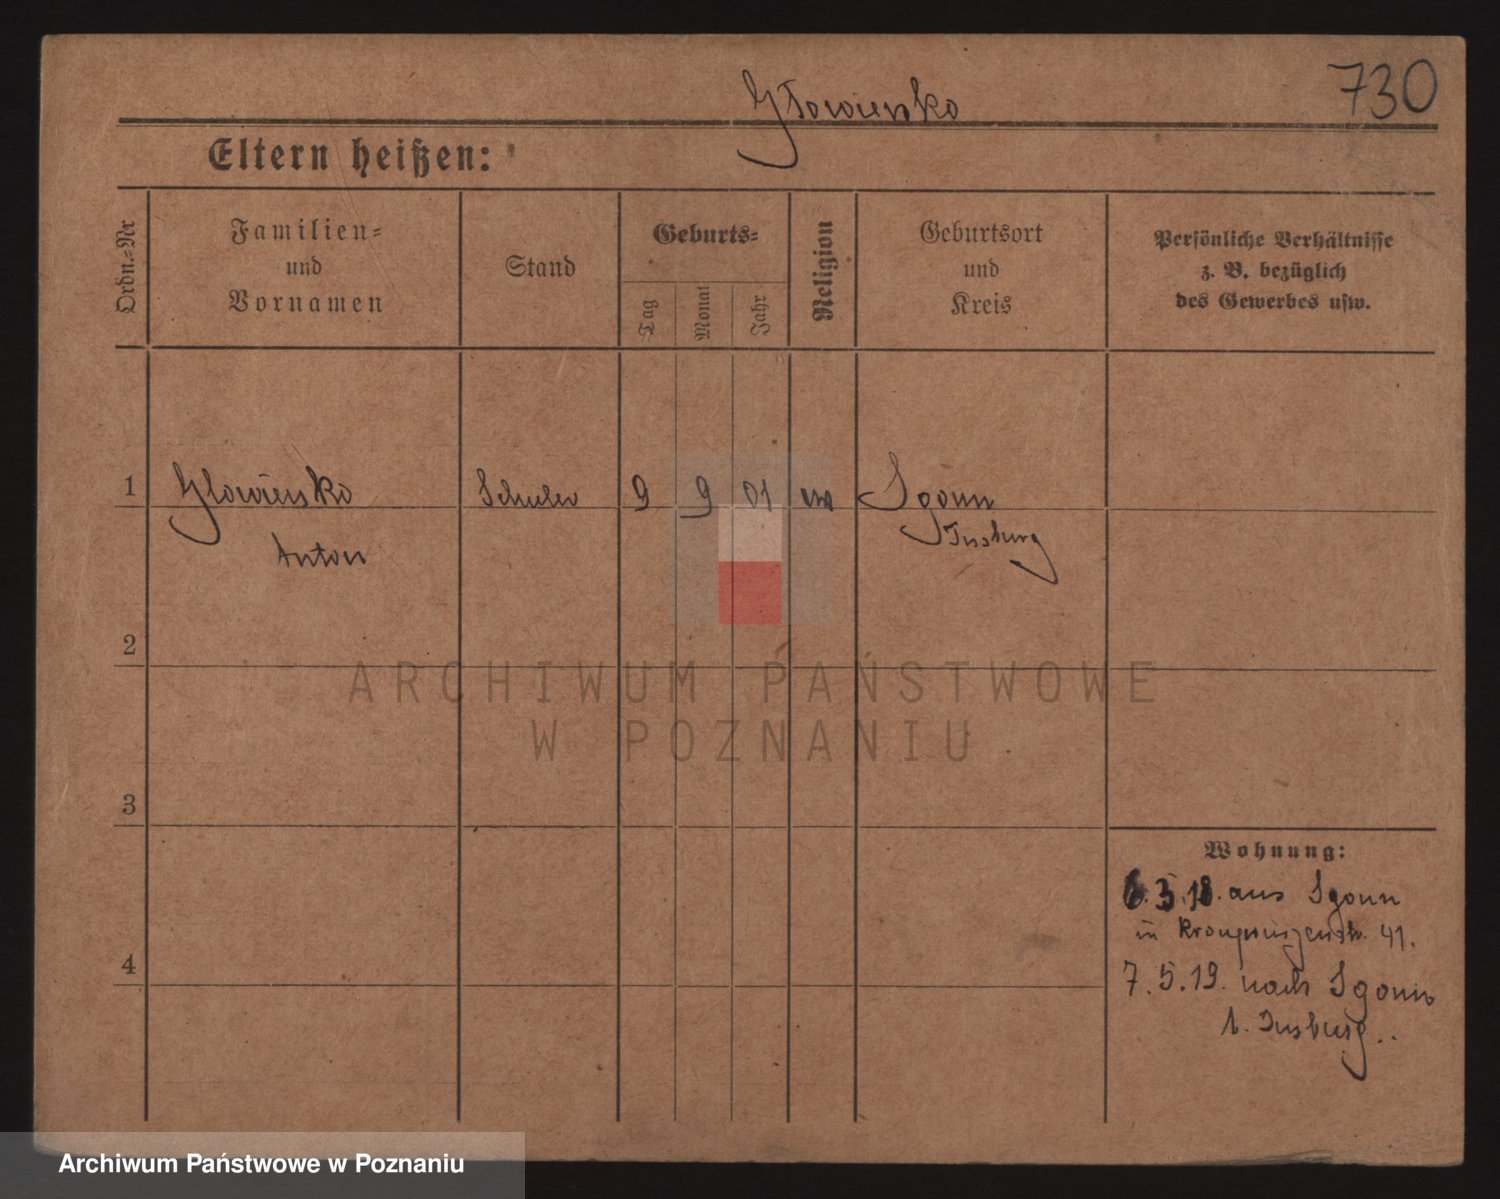 730
Glowiensko
Eltern heißen:
Ordn.-Nr
Familien-
und
Vornamen
Stand
Geburts-
Tag
Monat
Jahr
Religion
Geburtsort
und
Kreis
Persönliche Verhältnisse
z. B. bezüglich
des Gewerbes usw.
1
Glowiensko
Anton
Schuler
9
9
01
ew
Sgonn
2
3
4
Wohnung:
6.5.18. aus Sgonn
in Kronprinzenstr. 41.
7.5.19. nach Sgonn
ARCHIWUM PAŃSTWOWE
W POZNANIU
Archiwum Państwowe w Poznaniu